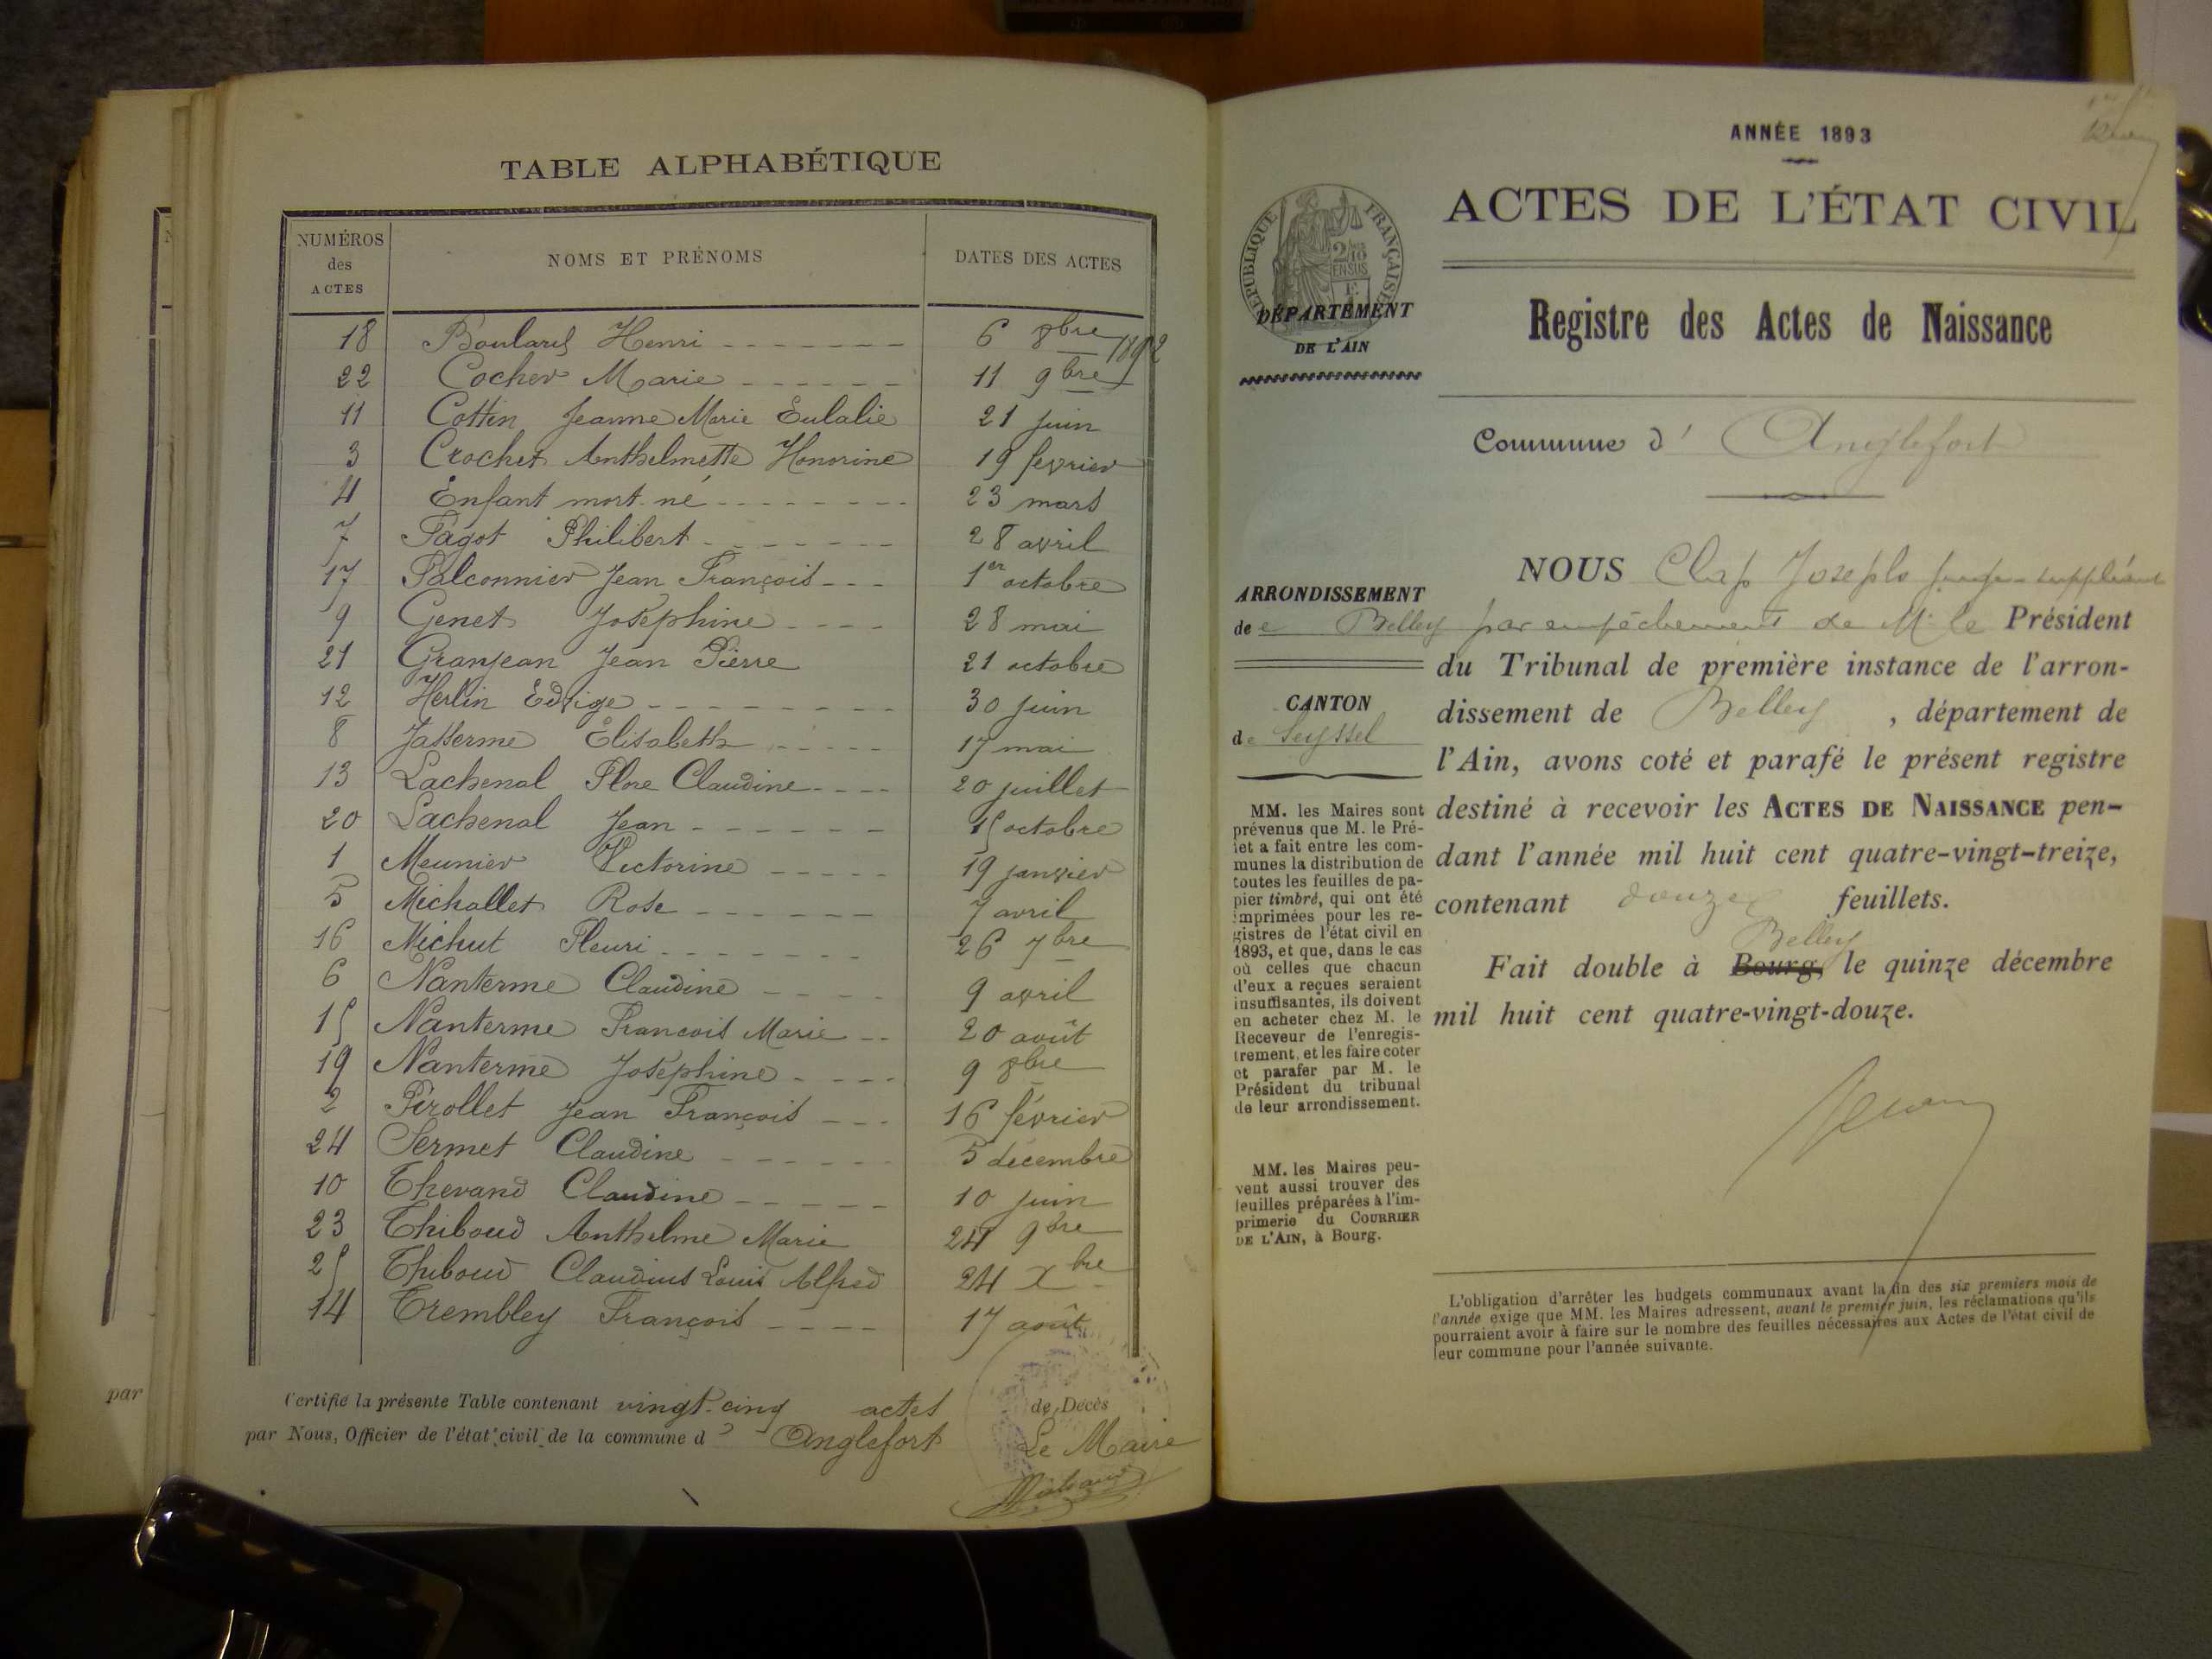 TABLE ALPHABÉTIQUE
NUMÉROS des ACTES NOMS ET PRÉNOMS DATES DES ACTES
18 Boulard Henri 6 8bre 1892
22 Cochet Marie 11 9bre
11 Cottin Jeanne Marie Eulalie 21 juin
3 Crochet Anthelmette Honorine 19 février
4 Enfant mort-né 23 mars
7 Fagot Philibert 28 avril
17 Falconnier Jean François 1er octobre
9 Genet Joséphine 28 mai
21 Granjean Jean Pierre 21 octobre
12 Herlin Edvige 30 juin
8 Jasserme Elisabeth 17 mai
13 Lachenal Flore Claudine 20 juillet
20 Lachenal Jean 15 octobre
1 Meunier Victorine 19 janvier
5 Michallet Rose 7 avril
16 Michut Fleuri 26 7bre
6 Nanterme Claudine 9 avril
15 Nanterme Francois Marie 20 août
19 Nanterme Joséphine 9 8bre
2 Pérollet Jean François 16 février
24 Sermet Claudine 5 décembre
10 Thevand Claudine 10 juin
23 Thiboud Anthelme Marie 24 9bre
25 Thiboud Claudius Louis Alfred 24 Xbre
14 Trembley François 17 août
Certifié la présente Table contenant vingt-cinq actes de Décès
par Nous, Officier de l'état civil de la commune d' Anglefort Le Maire
par
ANNÉE 1893
ACTES DE L'ÉTAT CIVIL
RÉPUBLIQUE FRANÇAISE
2/10 EN SUS
DÉPARTEMENT
DE L'AIN
Registre des Actes de Naissance
Commune d' Anglefort
ARRONDISSEMENT
de Belley
CANTON
de Seyssel
MM. les Maires sont
prévenus que M. le Pré-
fet a fait entre les com-
munes la distribution de
toutes les feuilles de pa-
pier timbré, qui ont été
imprimées pour les re-
gistres de l'état civil en
1893, et que, dans le cas
où celles que chacun
d'eux a reçues seraient
insuffisantes, ils doivent
en acheter chez M. le
Receveur de l'enregis-
trement, et les faire coter
et parafer par M. le
Président du tribunal
de leur arrondissement.
MM. les Maires peu-
vent aussi trouver des
feuilles préparées à l'im-
primerie du COURRIER
DE L'AIN, à Bourg.
NOUS Clap Joseph juge suppléant
par empêchement de M. le Président
du Tribunal de première instance de l'arron-
dissement de Belley, département de
l'Ain, avons coté et parafé le présent registre
destiné à recevoir les ACTES DE NAISSANCE pen-
dant l'année mil huit cent quatre-vingt-treize,
contenant douze feuillets.
Belley
Fait double à Bourg, le quinze décembre
mil huit cent quatre-vingt-douze.
L'obligation d'arrêter les budgets communaux avant la fin des six premiers mois de
l'année exige que MM. les Maires adressent, avant le premier juin, les réclamations qu'ils
pourraient avoir à faire sur le nombre des feuilles nécessaires aux Actes de l'état civil de
leur commune pour l'année suivante.